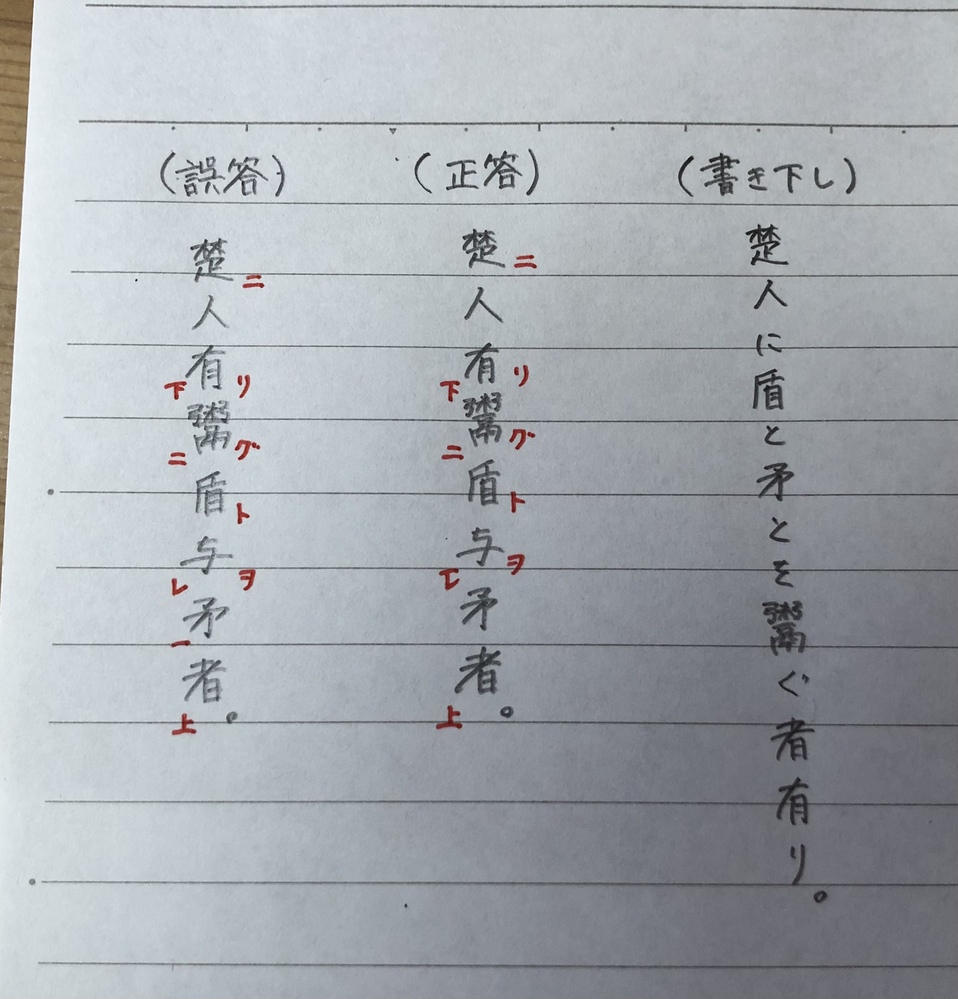 (書き下し)
楚人に盾と矛とを鬻ぐ者有り。
(正答)
楚ニ人有リ下鬻グ二盾ト与ヲ一レ矛者上。
(誤答)
楚ニ人有リ下鬻グ二盾ト与ヲレ矛一者上。